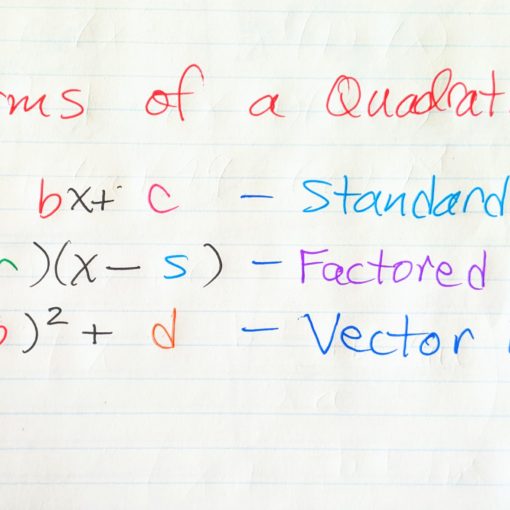 ms of a Quadrat
bx + c - Standard
)(x - s) - Factored
)² + d - Vector